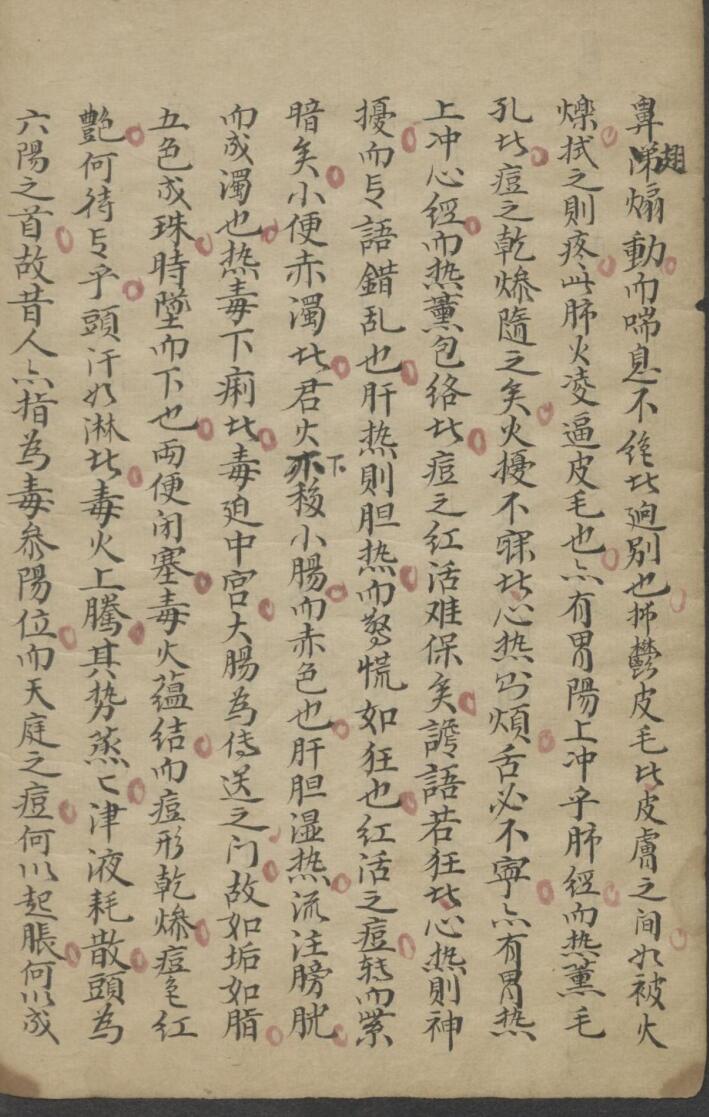 鼻翅煽動而喘息不絕此迥別也怫鬱皮毛此皮膚之间如被火
爍拭之則疼此肺火凌逼皮毛也亦有胃陽上冲乎肺經而热薰毛
孔此痘之乾燥隨之矣火擾不寐此心热必煩舌必不寧亦有胃热
上冲心經而热薰包络此痘之红活难保矣讝語若狂此心热則神
擾而言語錯乱也肝热則胆热而驚慌如狂也红活之痘转而紫
暗矣小便赤濁此君火下移小腸而赤色也肝胆湿热流注膀胱
而成濁也热毒下痢此毒迫中宫大腸為傳送之门故如垢如脂
五色成珠時墜而下也兩便闭塞毒火蕴结而痘形乾燥痘色红
艷何待言乎頭汗如淋此毒火上騰其势蒸〻津液耗散頭為
六陽之首故昔人亦指為毒参陽位而天庭之痘何以起脹何以成